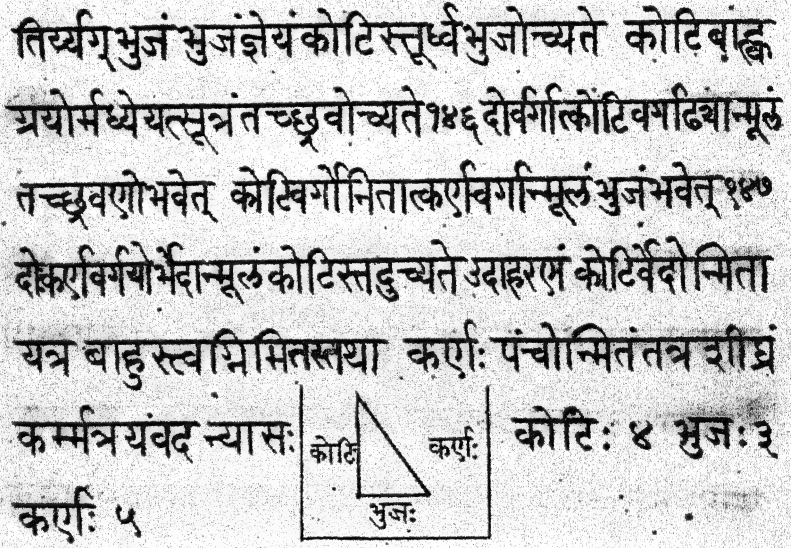 तिर्य्यग्भुजं भुजंज्ञेयंकोटिस्तूर्ध्वभुजोच्यते कोटिबाह्व
ग्रयोर्मध्येयत्सूत्रंतच्छ्रवोच्यते१४६ दोर्वर्गात्कोटिवर्गाढ्यान्मूलं
तच्छ्रवणोभवेत् कोटिवर्गोनितात्कर्णवर्गान्मूलंभुजंभवेत्१४७
दोःकर्णवर्गयोर्भेदान्मूलंकोटिस्तदुच्यते उदाहरणं कोटिर्वेदोन्मिता
यत्र बाहुस्त्वग्निमितस्तथा कर्णः पंचोन्मितंतत्र शीघ्रं
कर्म्मत्रयंवद न्यासः कोटिः ४ भुजः ३
कोटि कर्णः
भुजः
कर्णः ५